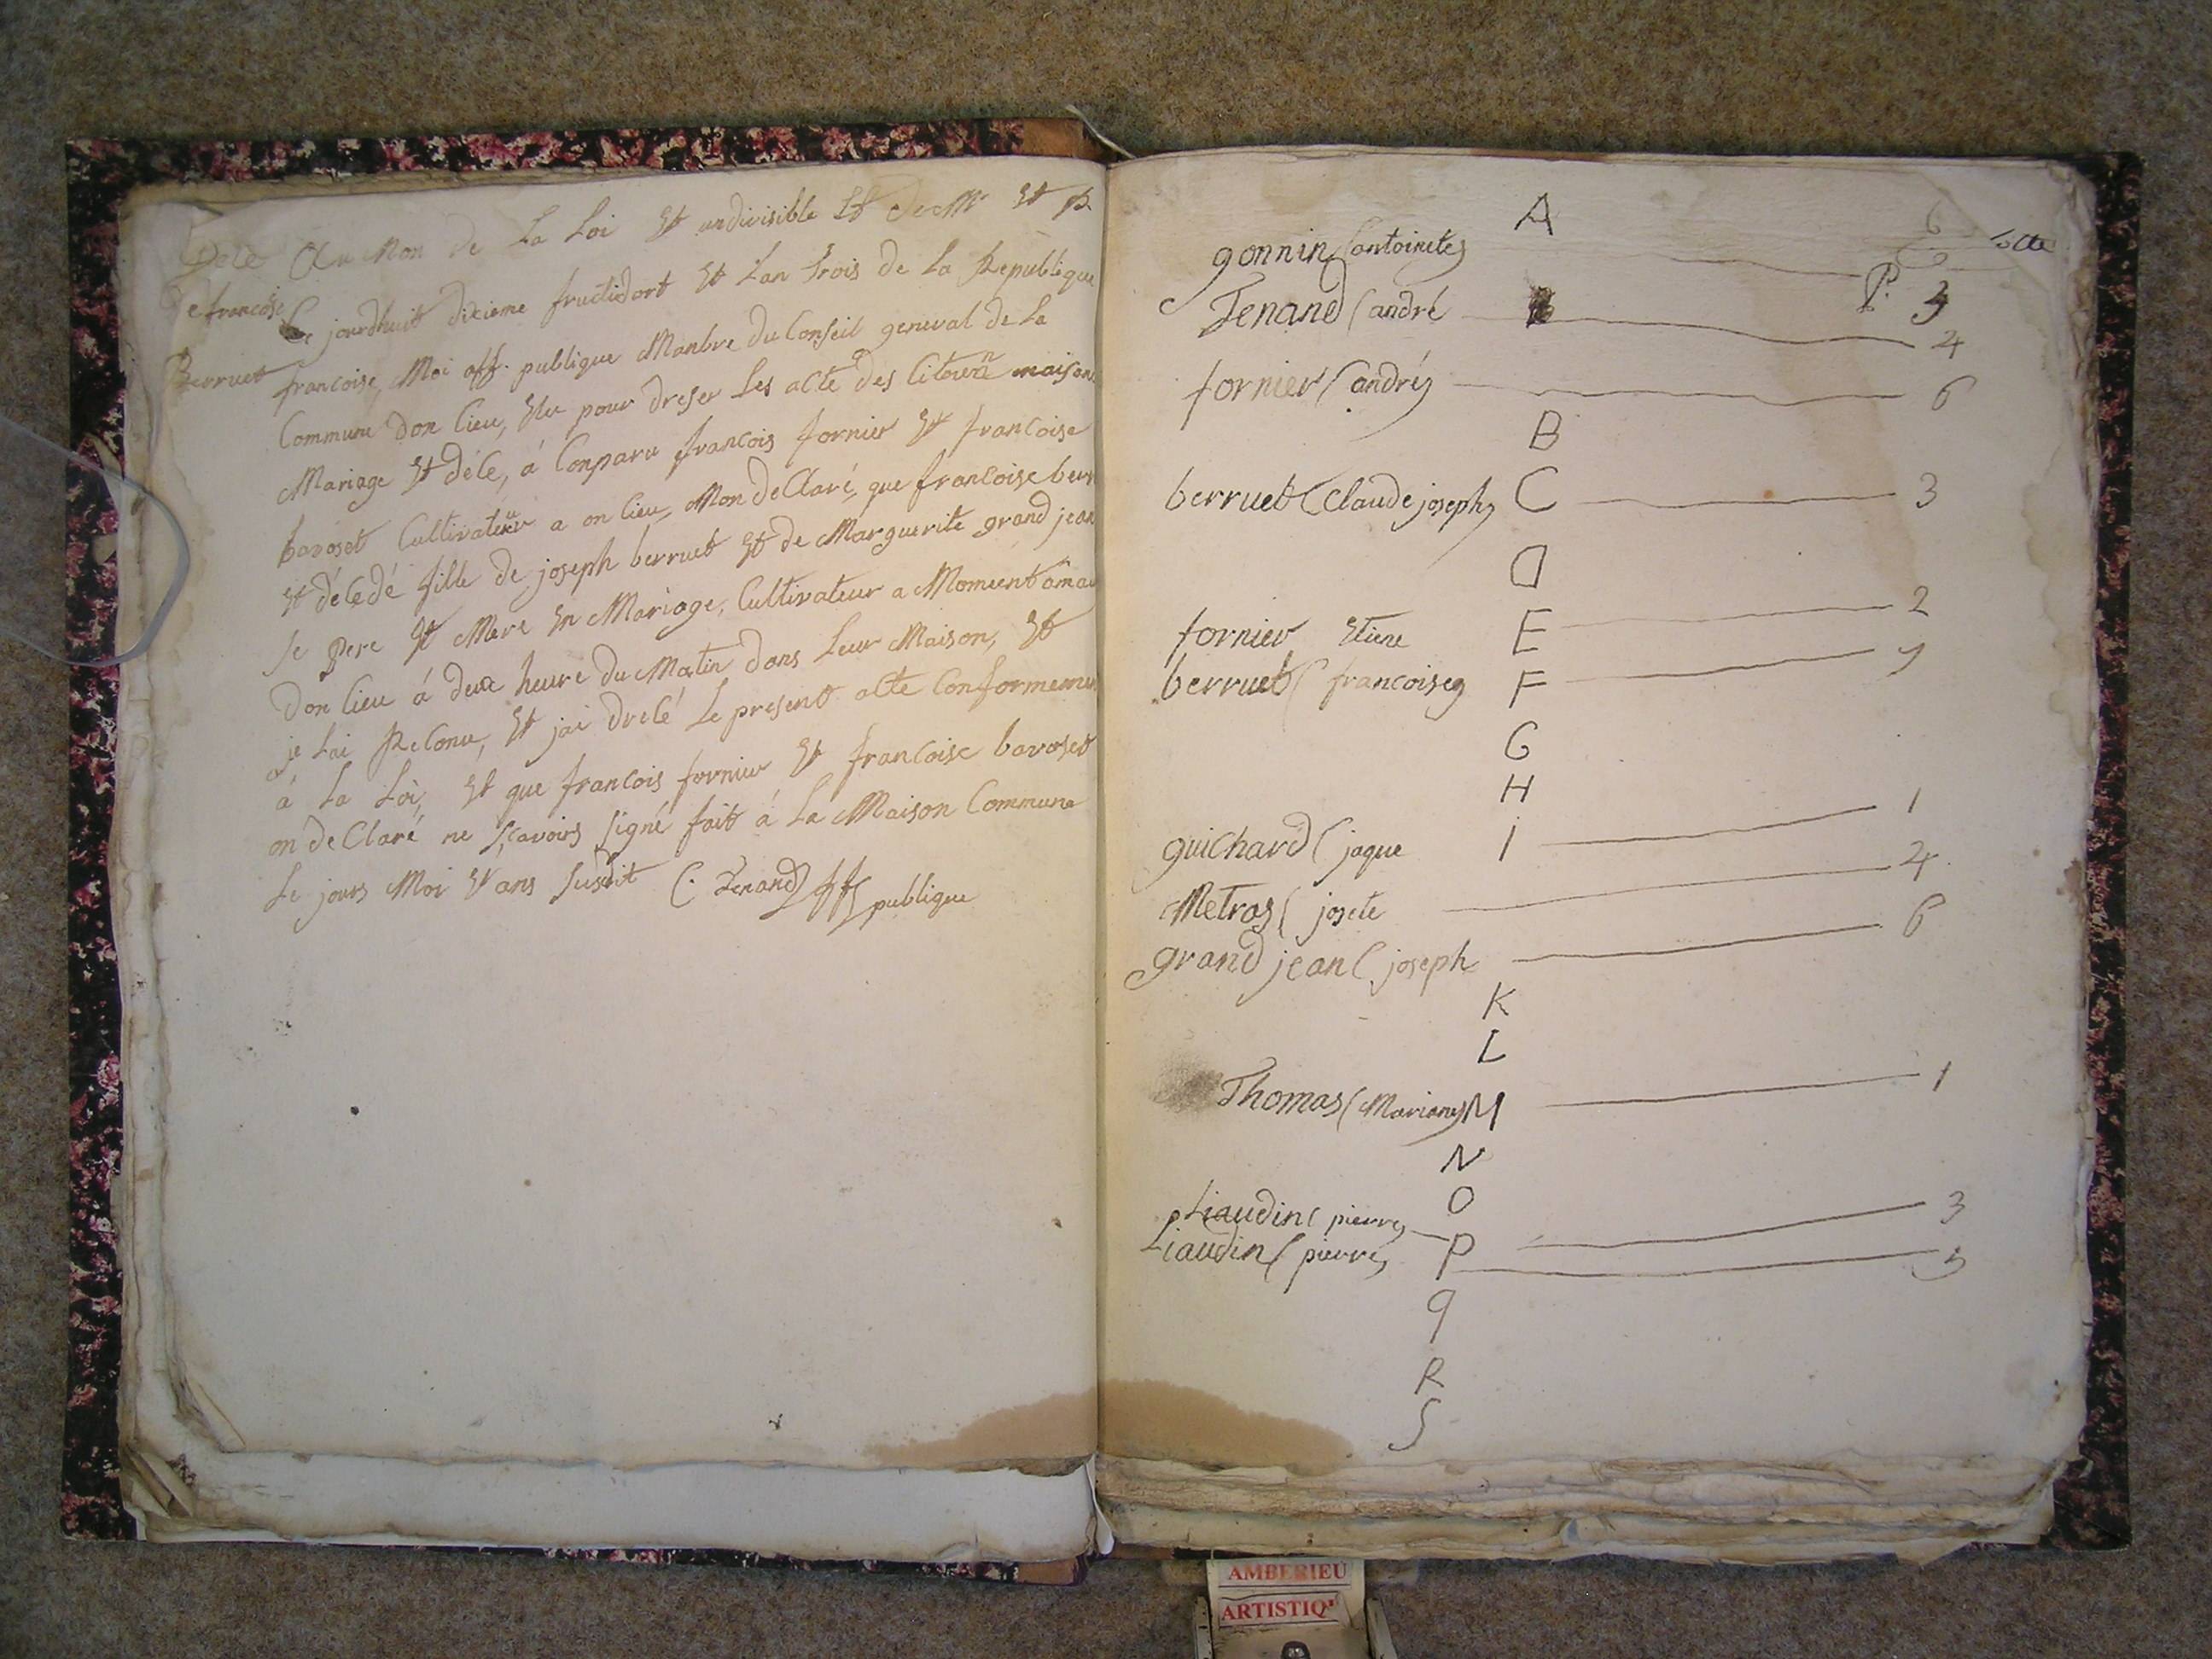 Décé
de francoise
Berruet
Au Mon de La Loi Et undivisible Et De Mr Et R
Ce jourdhuit dixieme fructidort Et Lan trois de La Republique
francoise, Moi off. publique Manbre du Conseil general de La
Commune don Lieu, Elu pour dreser Les acte des Citoien maison
Mariage Et décé, à Conparu francois fornier Et francoise
bavoset Cultivateur a on Lieu, Mon deClaré, que francoise berr
Et décedé fille de joseph berruet Et de Marguerite grand jean
se pere Et Mere En Mariage, Cultivateur a
Don Lieu á deux heure du Matin dans Leur Maison, Et
je Lai ReConu, Et jai dresé Le present acte Conformemen
á La Loi, Et que francois fornier Et francoise bavoset
on deClaré ne sçavoirs signé fait á La Maison Commune
Le jours Moi Et ans susdit C. Tenand off publique
A
gonnin (antoinete) 6
P.
Tenand (andré 4
fornier (andré) 6
B
berruet (Claude joseph) C 3
D
fornier Etiene E 2
berruet (francoise) F
G
H
guichard (jaque I 1
Metras (josete 4
grand jean (joseph 6
K
L
Thomas (Mariane) M 1
N
O
Liaudin (pierre) P 3
Liaudin (pierre)
q
R
S
AMBERIEU
ARTISTIQ